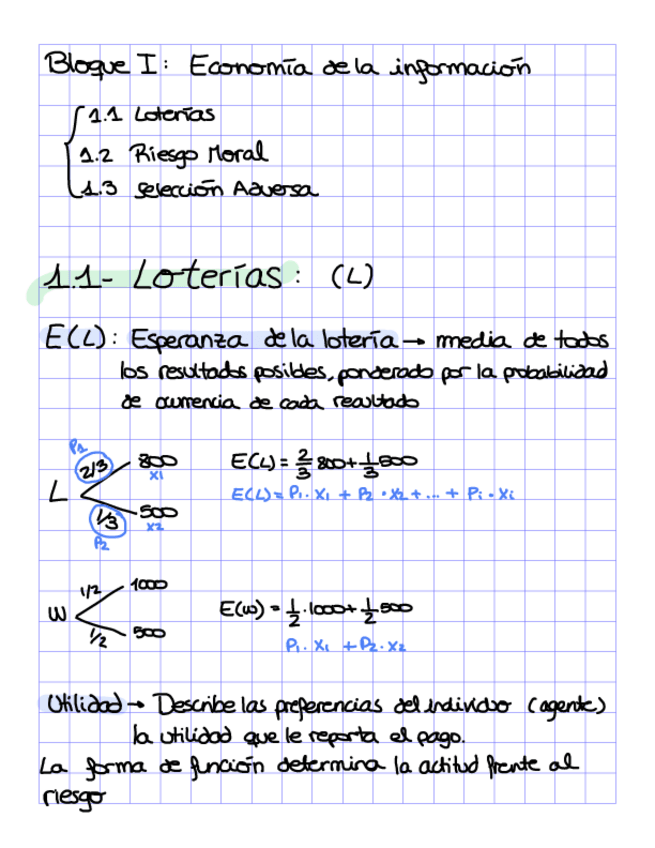 Bloque I: Economía de la información
1.1 Loterías
1.2 Riesgo Moral
1.3 Selección Adversa
1.1- Loterías: (L)
E(L): Esperanza de la lotería → media de todos
los resultados posibles, ponderado por la probabilidad
de ocurrencia de cada resultado
P1
2/3 800
x1
L
1/3 500
x2
P2
E(L) = 2/3 800 + 1/3 500
E(L) = P1 · X1 + P2 · X2 + ... + Pi · Xi
1/2 1000
W
1/2 500
E(W) = 1/2 · 1000 + 1/2 500
P1 · X1 + P2 · X2
Utilidad → Describe las preferencias del individuo (agente)
la utilidad que le reporta el pago.
La forma de función determina la actitud frente al
riesgo